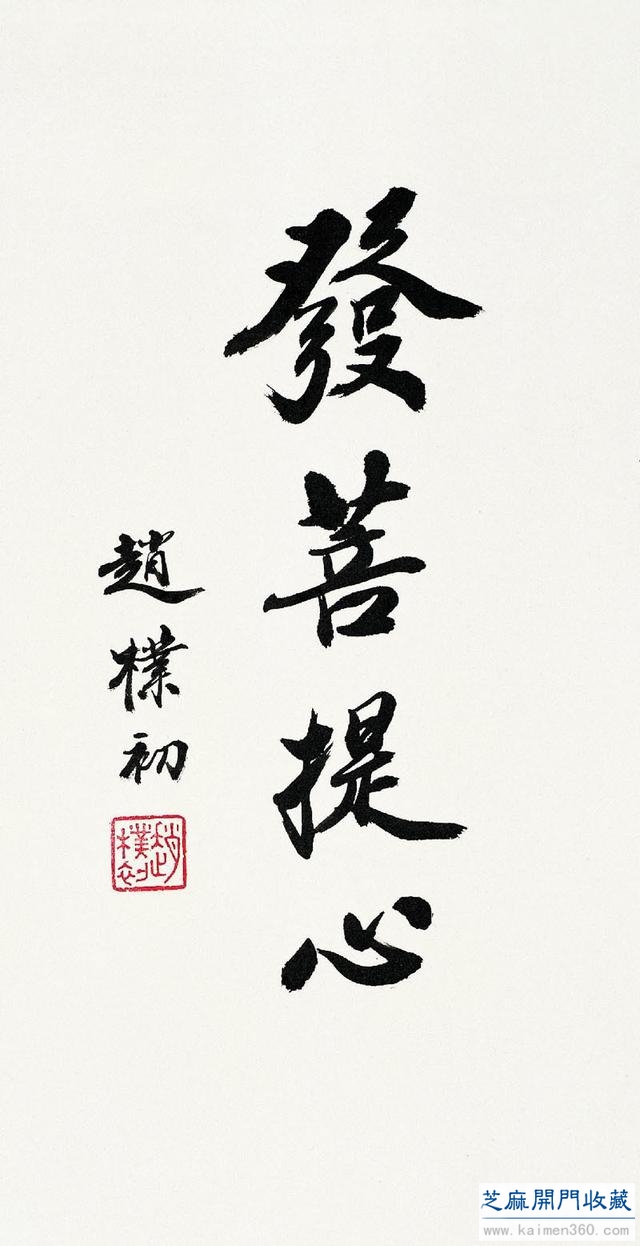 發菩提心
趙樸初
趙樸初
芝麻開門收藏
www.kaimen360.com